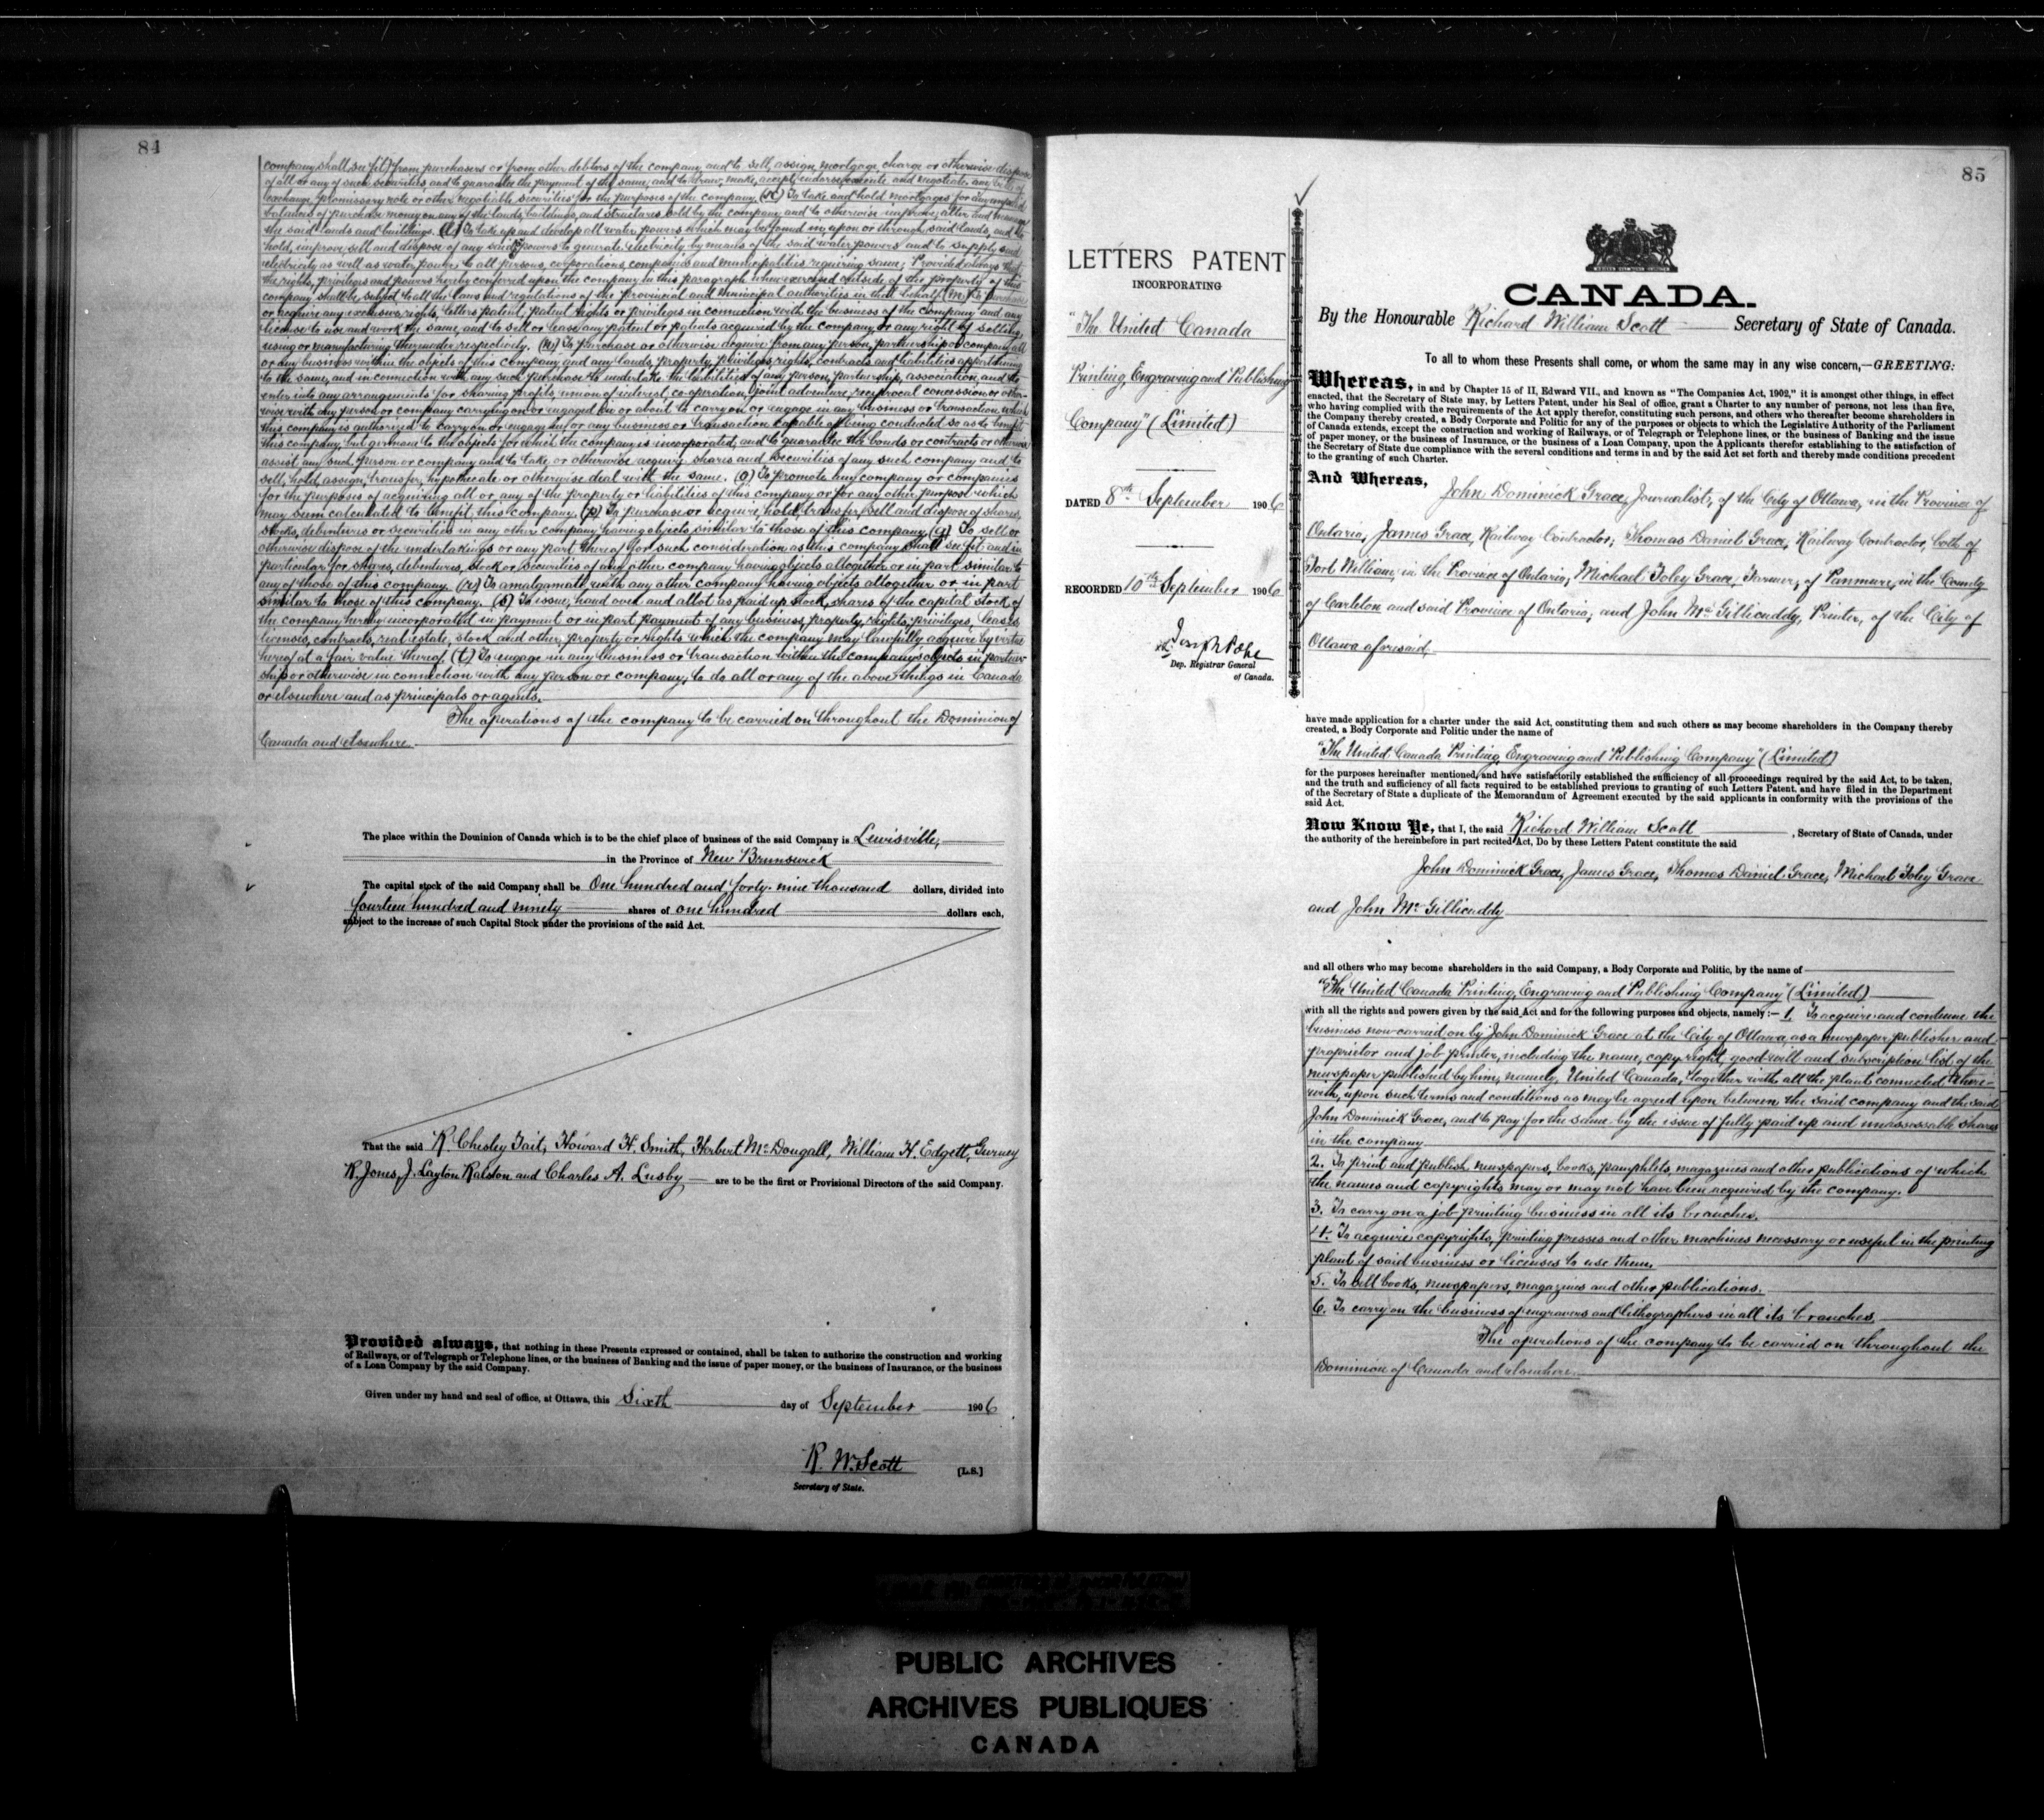 84
company shall see fit) from purchasers or from other debtors of the company and to sell, assign, mortgage, charge or otherwise dispose
of all or any of such securities and to guarantee the payment of the same, and to draw, make, accept, endorse, execute and negotiate any bills of
exchange, promissory note or other negotiable securities for the purposes of the company. (k) To take and hold mortgages for any unpaid
balances of purchase money on any of the lands, buildings, and structures sold by the company and to otherwise improve, alter and manage
the said lands and buildings. (l) To take up and develop all water powers which may be found in, upon or through said lands, and to
hold, improve, sell and dispose of any said powers to generate electricity by means of the said water powers and to supply said
electricity as well as water power, to all persons, corporations, companies and municipalities requiring same; Provided always that
the rights, privileges and powers hereby conferred upon the company in this paragraph when exercised outside of the property of this
company shall be subject to all the laws and regulations of the provincial and municipal authorities in that behalf. (m) To purchase
or acquire any exclusive rights, letters patent, patent rights or privileges in connection with the business of the company and any
license to use and work the same, and to sell or lease any patent or patents acquired by the company or any right of selling,
using or manufacturing thereunder respectively. (n) To purchase or otherwise acquire from any person, partnership or company all
or any business within the objects of this company and any lands, property, privileges, rights, contracts and liabilities appertaining
to the same, and in connection with any such purchase to undertake the liabilities of any person, partnership, association, and to
enter into any arrangements for sharing profits, union of interest, co-operation, joint adventure, reciprocal concession or other-
wise with any person or company carrying on or engaged in or about to carry on or engage in any business or transaction which
this company is authorized to carry on or engage in, or any business or transaction capable of being conducted so as to benefit
this company, but germane to the objects for which the company is incorporated, and to guarantee the bonds or contracts or otherwise
assist any such person or company and to take or otherwise acquire shares and securities of any such company and to
sell, hold, assign, transfer, hypothecate or otherwise deal with the same. (o) To promote any company or companies
for the purposes of acquiring all or any of the property or liabilities of this company or for any other purpose which
may seem calculated to benefit this company. (p) To purchase or acquire, hold, transfer, sell and dispose of shares,
stocks, debentures or securities in any other company having objects similar to those of this company. (q) To sell or
otherwise dispose of the undertakings or any part thereof for such consideration as this company shall see fit and in
particular for shares, debentures, stock or securities of any other company having objects altogether or in part similar to
any of those of this company. (r) To amalgamate with any other company having objects altogether or in part
similar to those of this company. (s) To issue, hand over and allot as paid up stock, shares of the capital stock of
the company hereby incorporated in payment or in part payment of any business, property, rights, privileges, leases,
licenses, contracts, real estate, stock and other property or rights which the company may lawfully acquire by virtue
hereof at a fair value thereof. (t) To engage in any business or transaction within the company's objects in partner-
ship or otherwise in connection with any person or company, to do all or any of the above things in Canada
or elsewhere and as principals or agents.
The operations of the company to be carried on throughout the Dominion of
Canada and elsewhere.
The place within the Dominion of Canada which is to be the chief place of business of the said Company is Lewisville,
in the Province of New Brunswick
The capital stock of the said Company shall be One hundred and forty-nine thousand dollars, divided into
fourteen hundred and ninety shares of one hundred dollars each,
subject to the increase of such Capital Stock under the provisions of the said Act.
That the said R. Chesley Tait, Howard H. Smith, Herbert McDougall, William H. Edgett, Gurney
R. Jones, J. Layton Ralston and Charles A. Lusby are to be the first or Provisional Directors of the said Company.
Provided always, that nothing in these Presents expressed or contained, shall be taken to authorize the construction and working
of Railways, or of Telegraph or Telephone lines, or the business of Banking and the issue of paper money, or the business of Insurance, or the business
of a Loan Company by the said Company.
Given under my hand and seal of office, at Ottawa, this Sixth day of September 1906
R. W. Scott [L.S.]
Secretary of State.
85
LETTERS PATENT
INCORPORATING
"The United Canada
Printing, Engraving and Publishing
Company" (Limited)
DATED 8th September 1906
RECORDED 10th September 1906
Joseph Pope
Dep. Registrar General
of Canada.
CANADA.
By the Honourable Richard William Scott Secretary of State of Canada.
To all to whom these Presents shall come, or whom the same may in any wise concern,—GREETING:
Whereas, in and by Chapter 15 of II, Edward VII., and known as "The Companies Act, 1902," it is amongst other things, in effect
enacted, that the Secretary of State may, by Letters Patent, under his Seal of office, grant a Charter to any number of persons, not less than five,
who having complied with the requirements of the Act apply therefor, constituting such persons, and others who thereafter become shareholders in
the Company thereby created, a Body Corporate and Politic for any of the purposes or objects to which the Legislative Authority of the Parliament
of Canada extends, except the construction and working of Railways, or of Telegraph or Telephone lines, or the business of Banking and the issue
of paper money, or the business of Insurance, or the business of a Loan Company, upon the Applicants therefor establishing to the satisfaction of
the Secretary of State due compliance with the several conditions and terms in and by the said Act set forth and thereby made conditions precedent
to the granting of such Charter.
And Whereas,
John Dominick Grace, Journalist, of the City of Ottawa, in the Province of
Ontario, James Grace, Railway Contractor; Thomas Daniel Grace, Railway Contractor, both of
Fort William, in the Province of Ontario; Michael Foley Grace, Farmer, of Panmure, in the County
of Carleton and said Province of Ontario; and John McGillicuddy, Printer, of the City of
Ottawa aforesaid,
have made application for a charter under the said Act, constituting them and such others as may become shareholders in the Company thereby
created, a Body Corporate and Politic under the name of
"The United Canada Printing, Engraving and Publishing Company" (Limited)
for the purposes hereinafter mentioned, and have satisfactorily established the sufficiency of all proceedings required by the said Act, to be taken,
and the truth and sufficiency of all facts required to be established previous to granting of such Letters Patent, and have filed in the Department
of the Secretary of State a duplicate of the Memorandum of Agreement executed by the said applicants in conformity with the provisions of the
said Act.
Now Know Ye, that I, the said Richard William Scott, Secretary of State of Canada, under
the authority of the hereinbefore in part recited Act, Do by these Letters Patent constitute the said
John Dominick Grace, James Grace, Thomas Daniel Grace, Michael Foley Grace
and John McGillicuddy
and all others who may become shareholders in the said Company, a Body Corporate and Politic, by the name of
"The United Canada Printing, Engraving and Publishing Company" (Limited)
with all the rights and powers given by the said Act and for the following purposes and objects, namely :— 1. To acquire and continue the
business now carried on by John Dominick Grace at the City of Ottawa, as a newspaper publisher and
proprietor and job printer, including the name, copyright, good-will and subscription list of the
newspaper published by him, namely, United Canada, together with all the plant connected there-
with, upon such terms and conditions as may be agreed upon between the said company and the said
John Dominick Grace, and to pay for the same by the issue of fully paid up and unassessable shares
in the company
2. To print and publish newspapers, books, pamphlets, magazines and other publications of which
the names and copyrights may or may not have been acquired by the company.
3. To carry on a job printing business in all its branches.
4. To acquire copyrights, printing presses and other machines necessary or useful in the printing
plant of said business or licenses to use them.
5. To sell books, newspapers, magazines and other publications.
6. To carry on the business of engravers and lithographers in all its branches.
The operations of the company to be carried on throughout the
Dominion of Canada and elsewhere.
PUBLIC ARCHIVES
ARCHIVES PUBLIQUES
CANADA